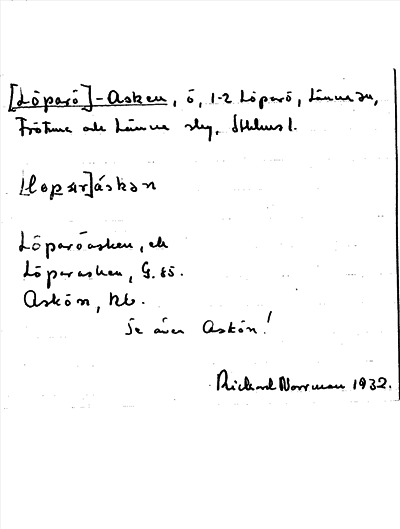 [Löparö]-Asken, ö, 1-2 Löparö, Länna sn,
Frötuna och Länna skg, Sthlms l.
[löpar]áskan
Löparöasken, ek
Löparasken, G. 85.
Askön, kb.
Se även Askön!
Rickard Norrman 1932.